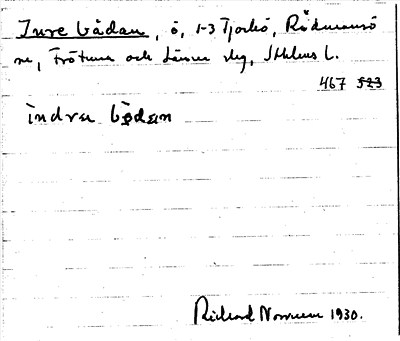 Inre bådan, ö, 1-3 Tjockö, Rådmansö
sn, Frötuna och Länna slg, Sthlms l.
467 523
indra bådan
Rickard Norrman 1930.